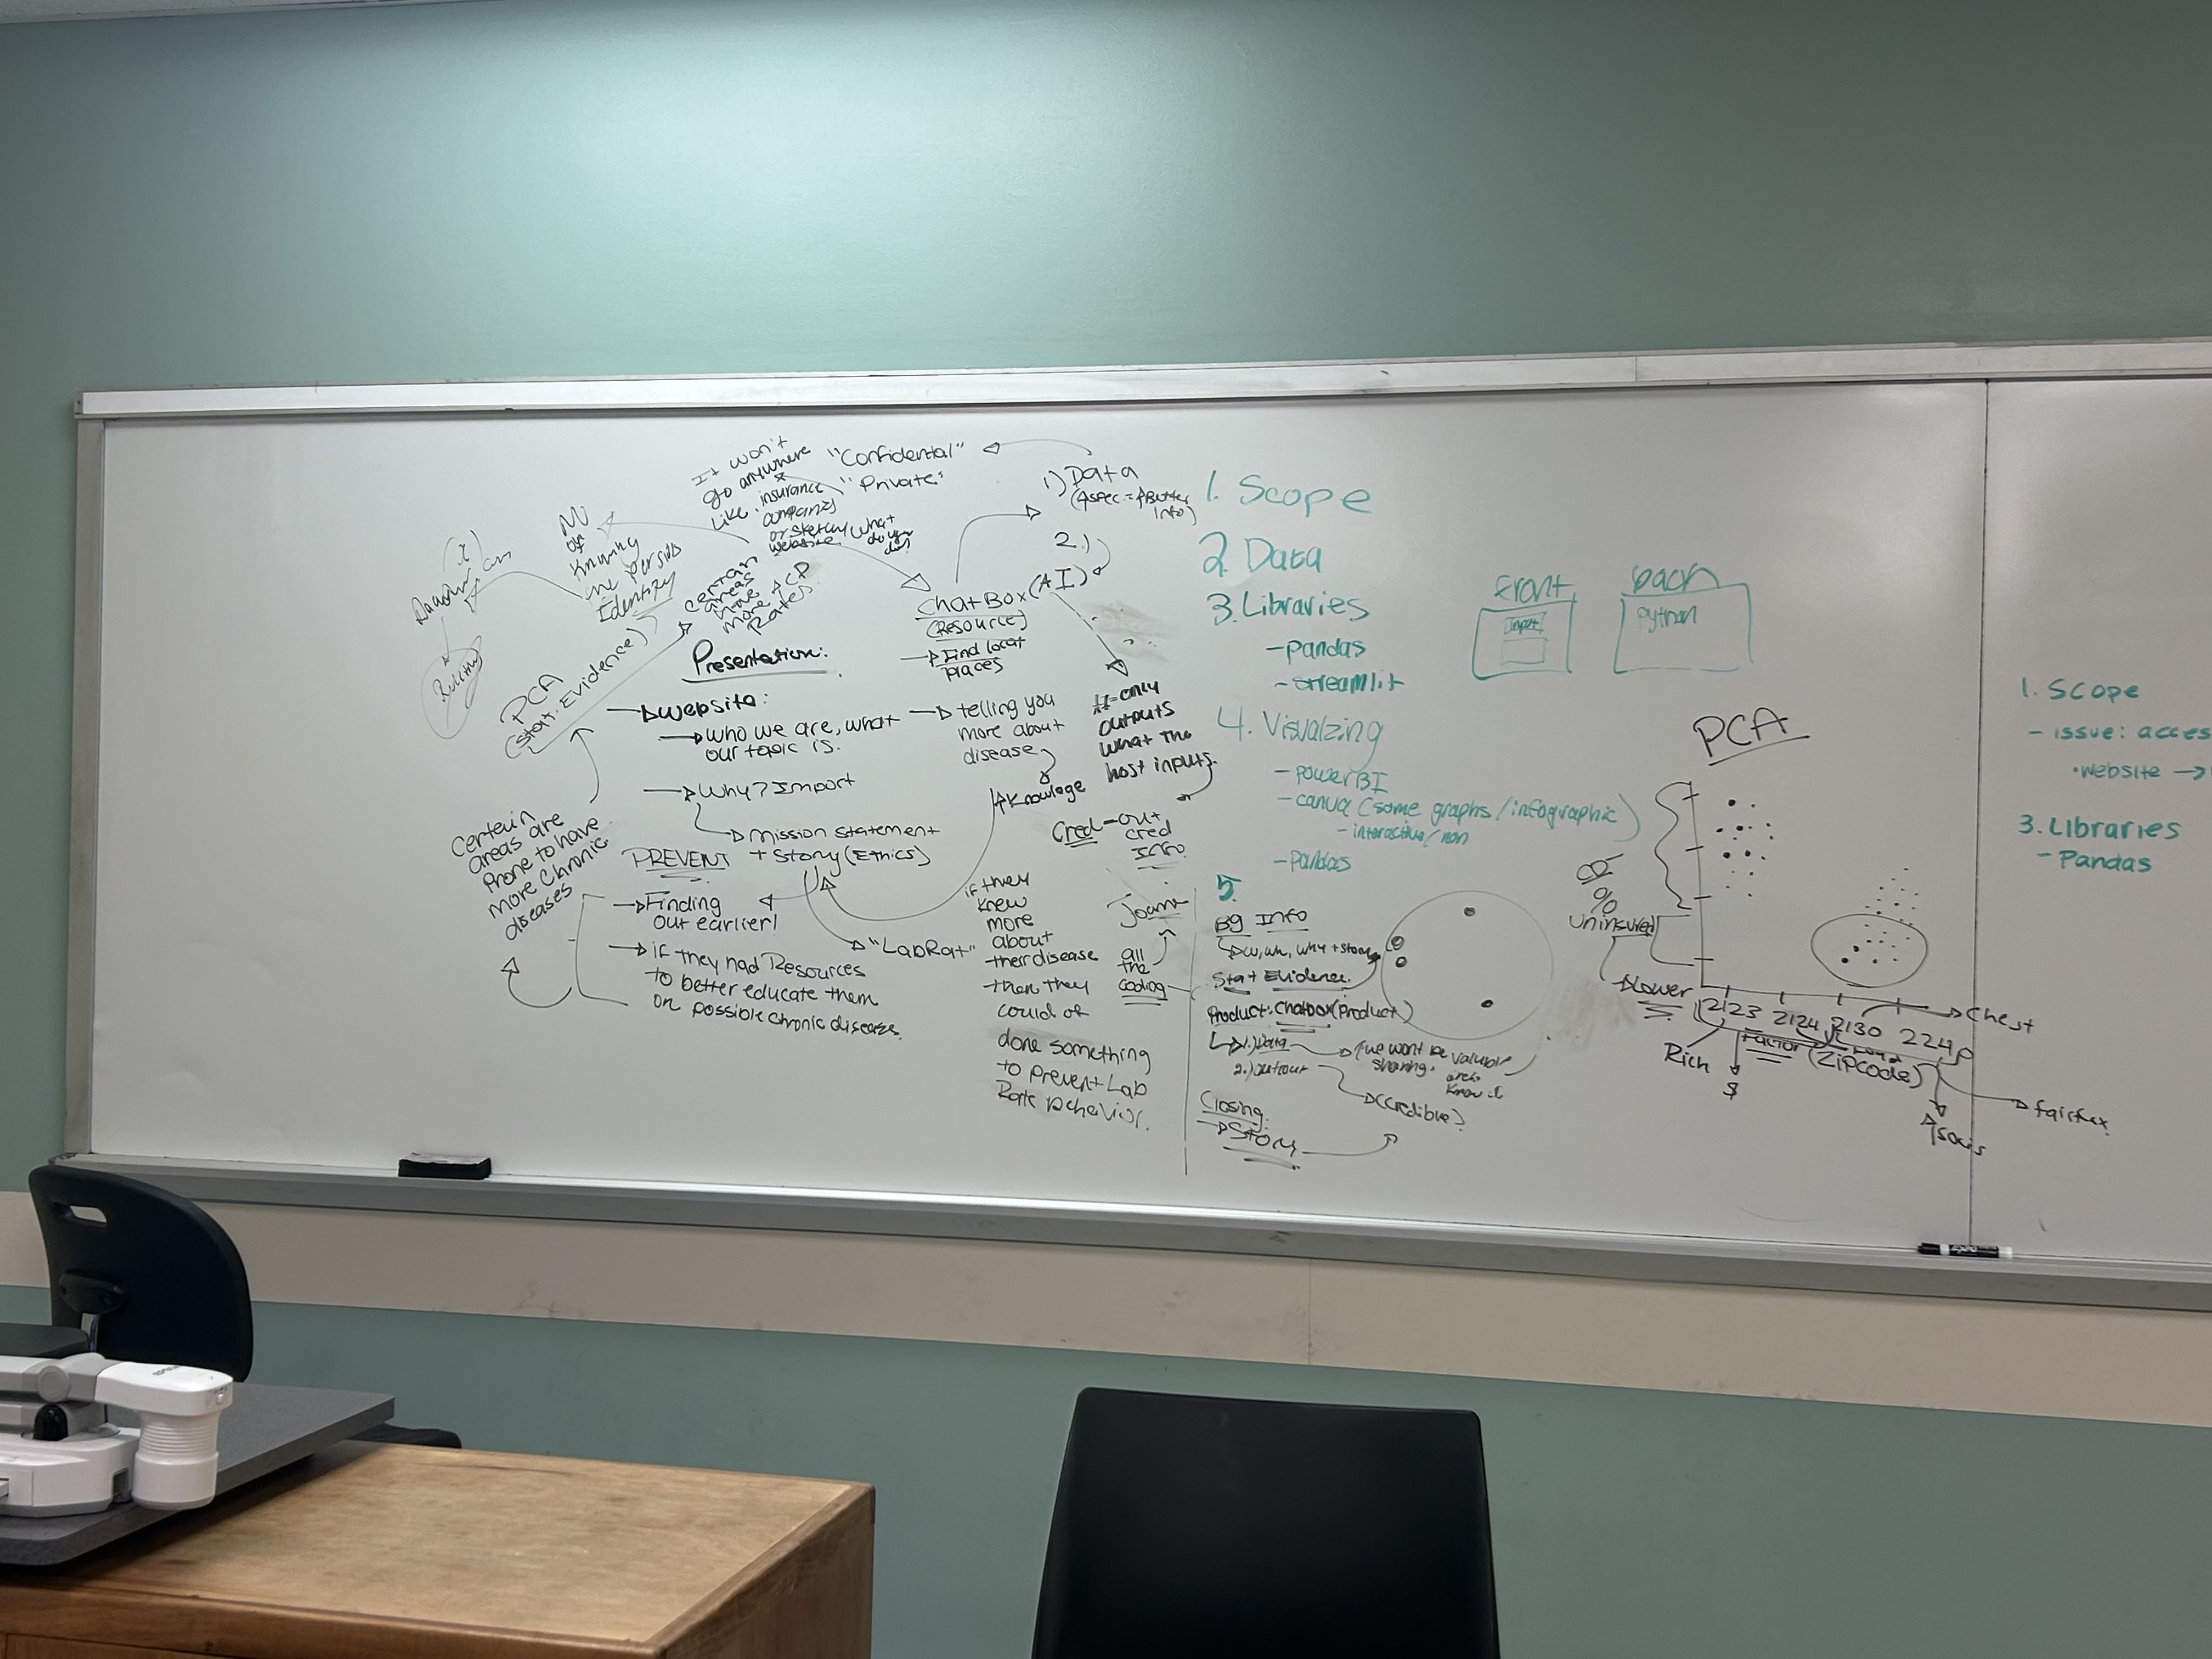 It won't
go anywhere
like insurance
companies
or sketchy
website
"Confidental"
"Private"
What
do you
do
1) Data
(4spec = Better
info)
2.)
NU
of
Knowing
the persons
Identity
(x)
PCA
(stat. Evidence)
certain
areas
have
more
Rates
ChatBox (AI)
(Resource)
Find local
places
telling you
more about
disease
Knowloge
It only
outputs
what the
host inputs.
Cred - out
cred
Info.
Joann
all
the
coding
Presentation:
website:
who we are, what
our topic is.
Why? Import
Mission statement
+ Story (Ethics)
PREVENT
Finding
out earlier!
if they had Resources
to better educate them
on possible chronic diseases.
certein
areas are
Prone to have
more chronic
diseases
"LabRat"
if they
knew
more
about
their disease
then they
could of
done something
to prevent Lab
Rate behavior.
1. Scope
2. Data
3. Libraries
- pandas
- streamlit
4. Visualzing
- powerBI
- canva (some graphs/infographic)
- interactive/non
- pandas
5.
Bg Info
w, wh, why + story
Stat Evidence.
Product: Chatbox (Product)
1.) Data
2.) output
we wont be
sharing.
Valuable
Know it
(credible?
Closing
Story
Front
input
back
python
PCA
%
Uninsured
Lower
2123 2124 2130 2240
Factor (ZipCode)
Rich
$
Chest
fairfax
1. Scope
- issue: acces
• website →
3. Libraries
- Pandas